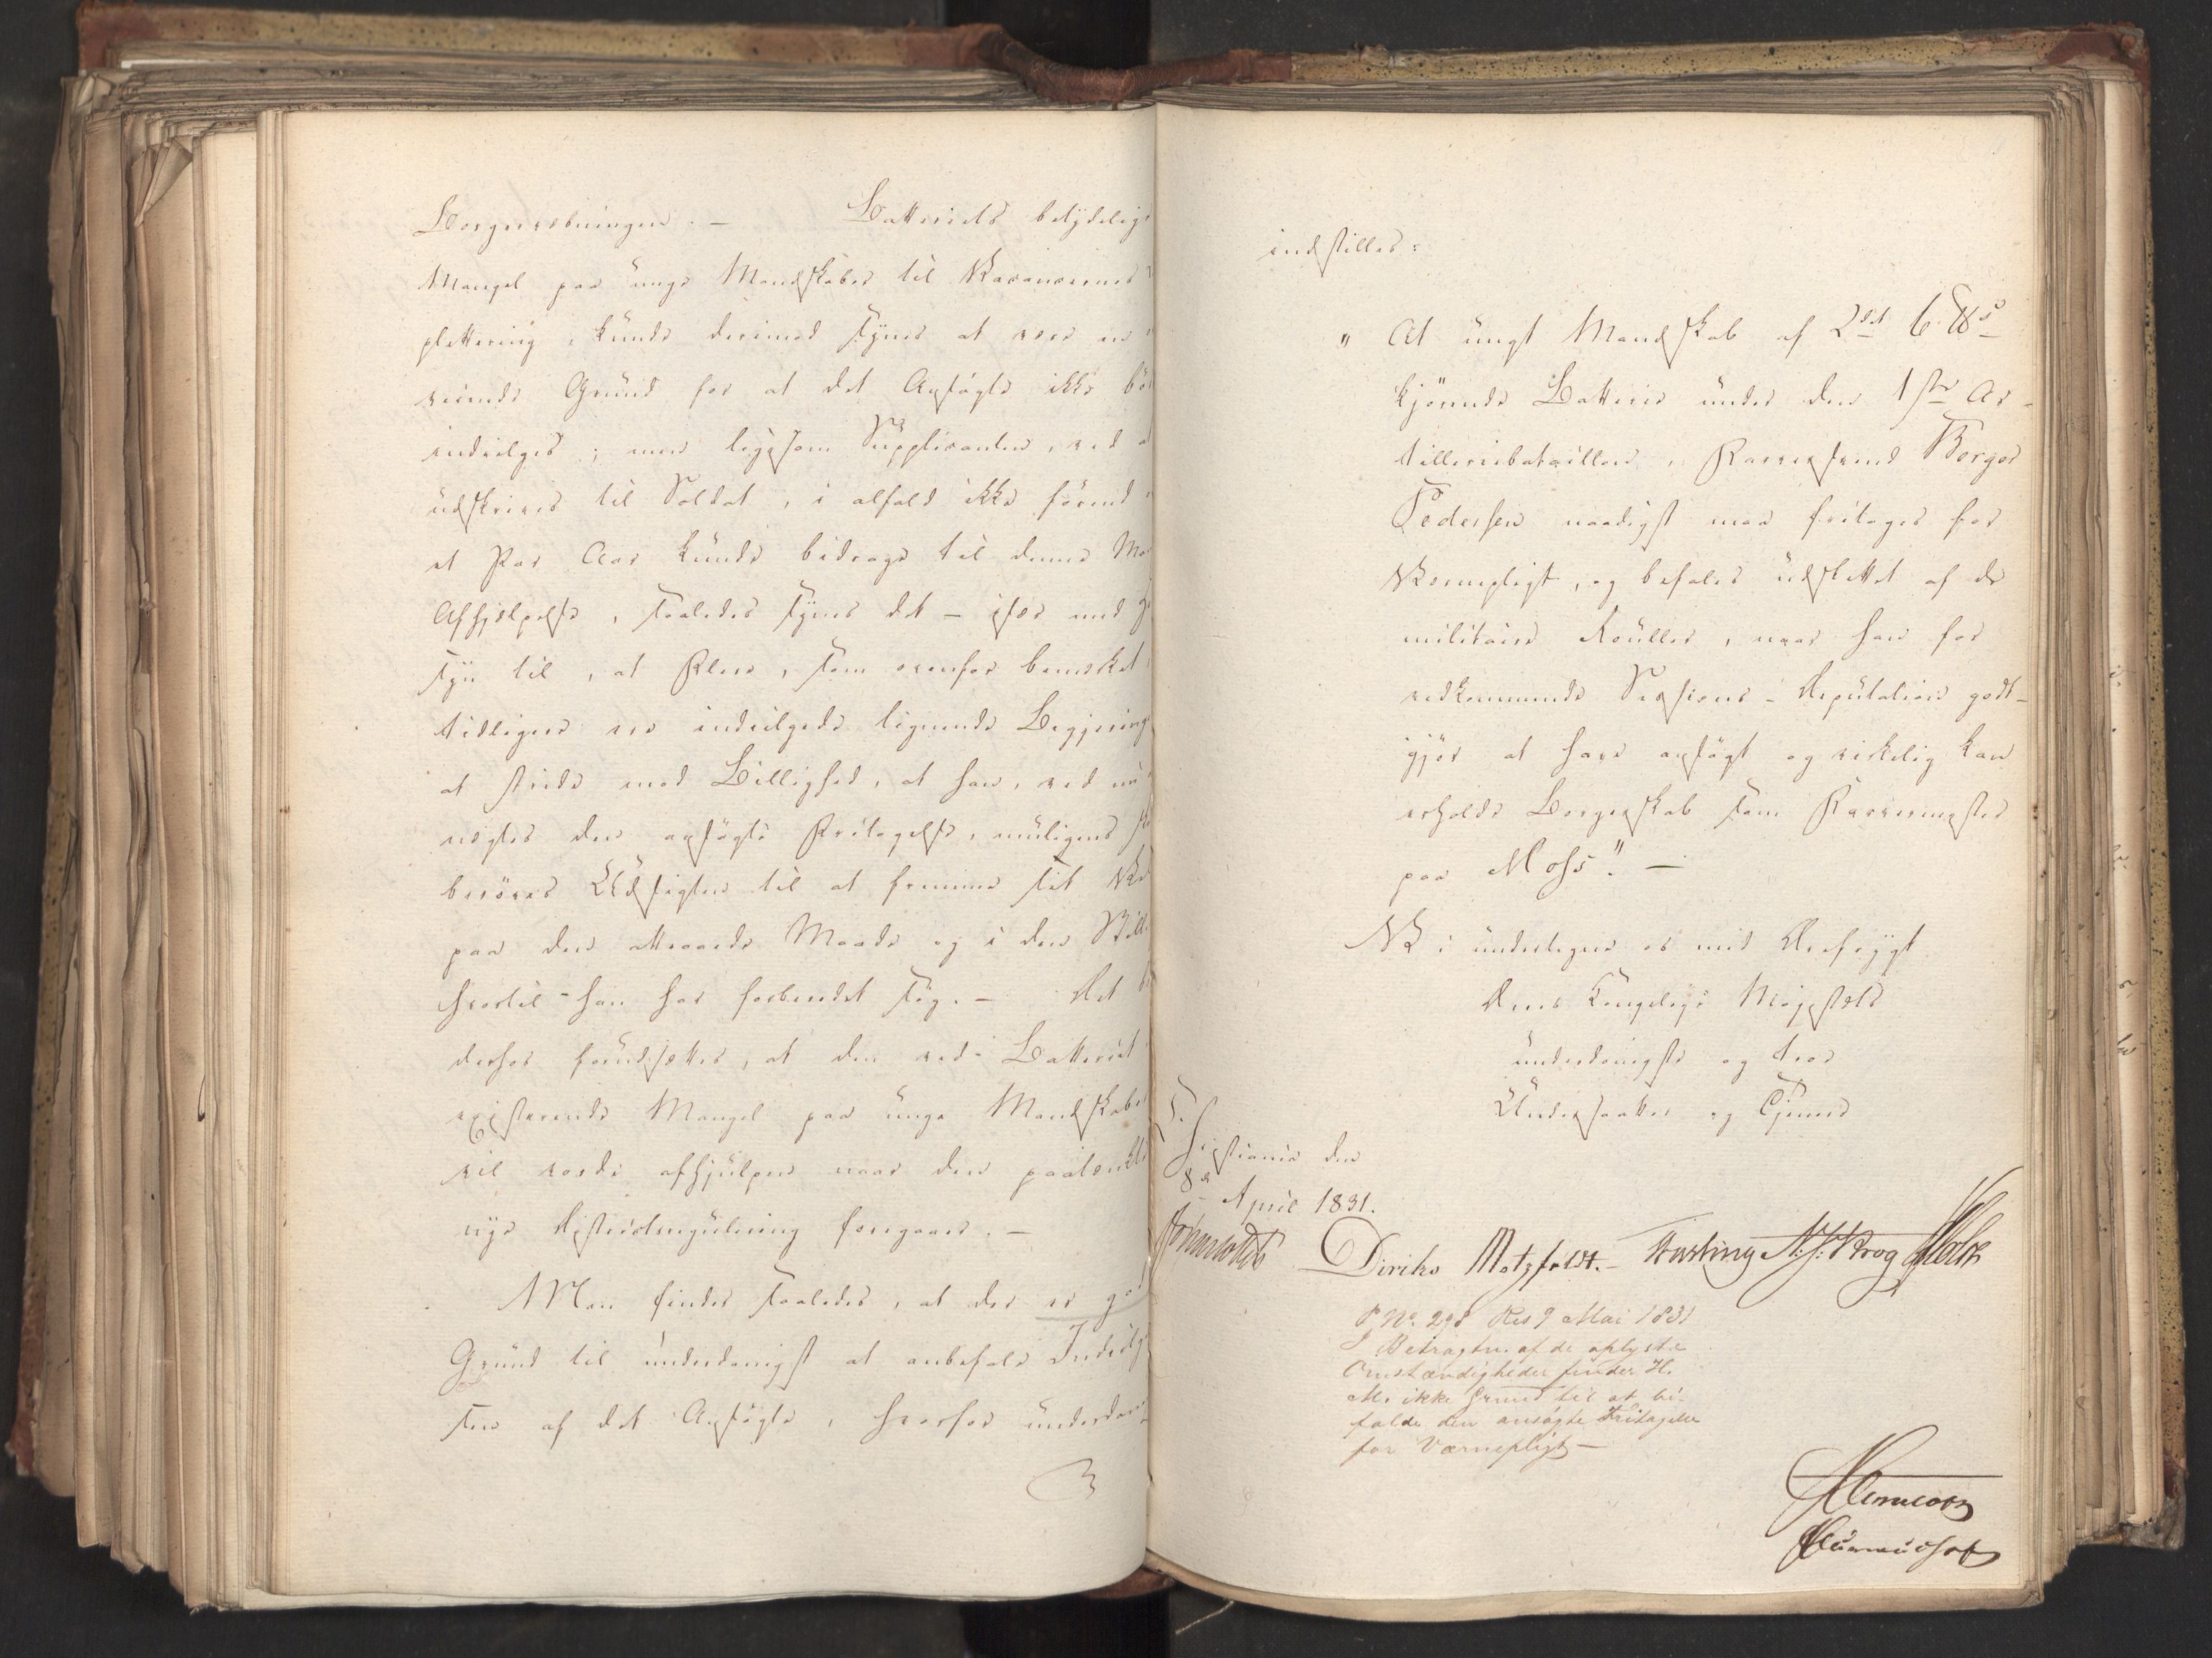 Borgervæbningen. — Batteriets betydelige
Mangel paa unge Mandskaber til Vacancernes
plettering, kunde derimod synes at være en
veiende Grund for at det Ansøgte ikke bør
indvilges; men ligesom Supplicanten, ved at
udskrives til Soldat, i alfald ikke førend
et Par Aar kunde bidrage til denne
Afhjelpelse, saaledes synes det — især med
syn til, at Flere, som ovenfor bemerket
tidligere ere indvilgede lignende Begjering
at stride mod Billighed, at han, ved nu
nægtes den ansøgte Fritagelse, muligens
berøves Udsigten til at fremme sit
paa den attraaede Maade og i den
hvortil han har forberedet sig. — Det
derhos forudsættes, at den ved Batteriet
existerende Mangel paa unge Mandskaber
vil vorde afhjulpen naar den paatænkte
nye Districtsregulering foregaaer. —
Man finder saaledes, at der er
Grund til underdanigst at anbefale Indvilg
sen af det Ansøgte, hvorfor underdan
indstilles:
" At ungt Mandskab af 2det 6 ℔s
kjørende Batterie under den 1ste Ar-
tilleriebataillon, Farversvend Borger
Pedersen naadigst maa fritages for
Værnepligt, og befales udslettet af de
militaire Rouller, naar han for
vedkommende Sessions-Deputation godt-
gjør at have ansøgt og virkelig kan
erholde Borgerskab som Farvermester
paa Moss". —
Vi undertegne os med Dyb
Deres Kongelige Majestæts
underdanigste og troe
Undersaatter og Tjenere
Christiania den
8de April 1831.
Diriks Motzfeldt. N: J: Krog Holst
P. No. 298 Res 9 Mai 1831
I Betragtn. af de oplyste
Omstændigheder finder H.
M. ikke Grund til at bi-
falde den ansøgte Fritagelse
for Værnepligt —